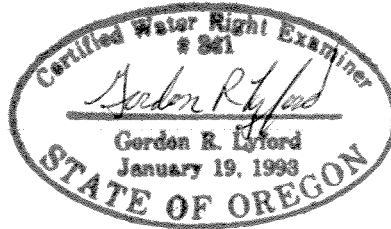 Certified Water Right Examiner
Gordon R Lyford
Gordon R. Lyford
January 19, 1993
STATE OF OREGON